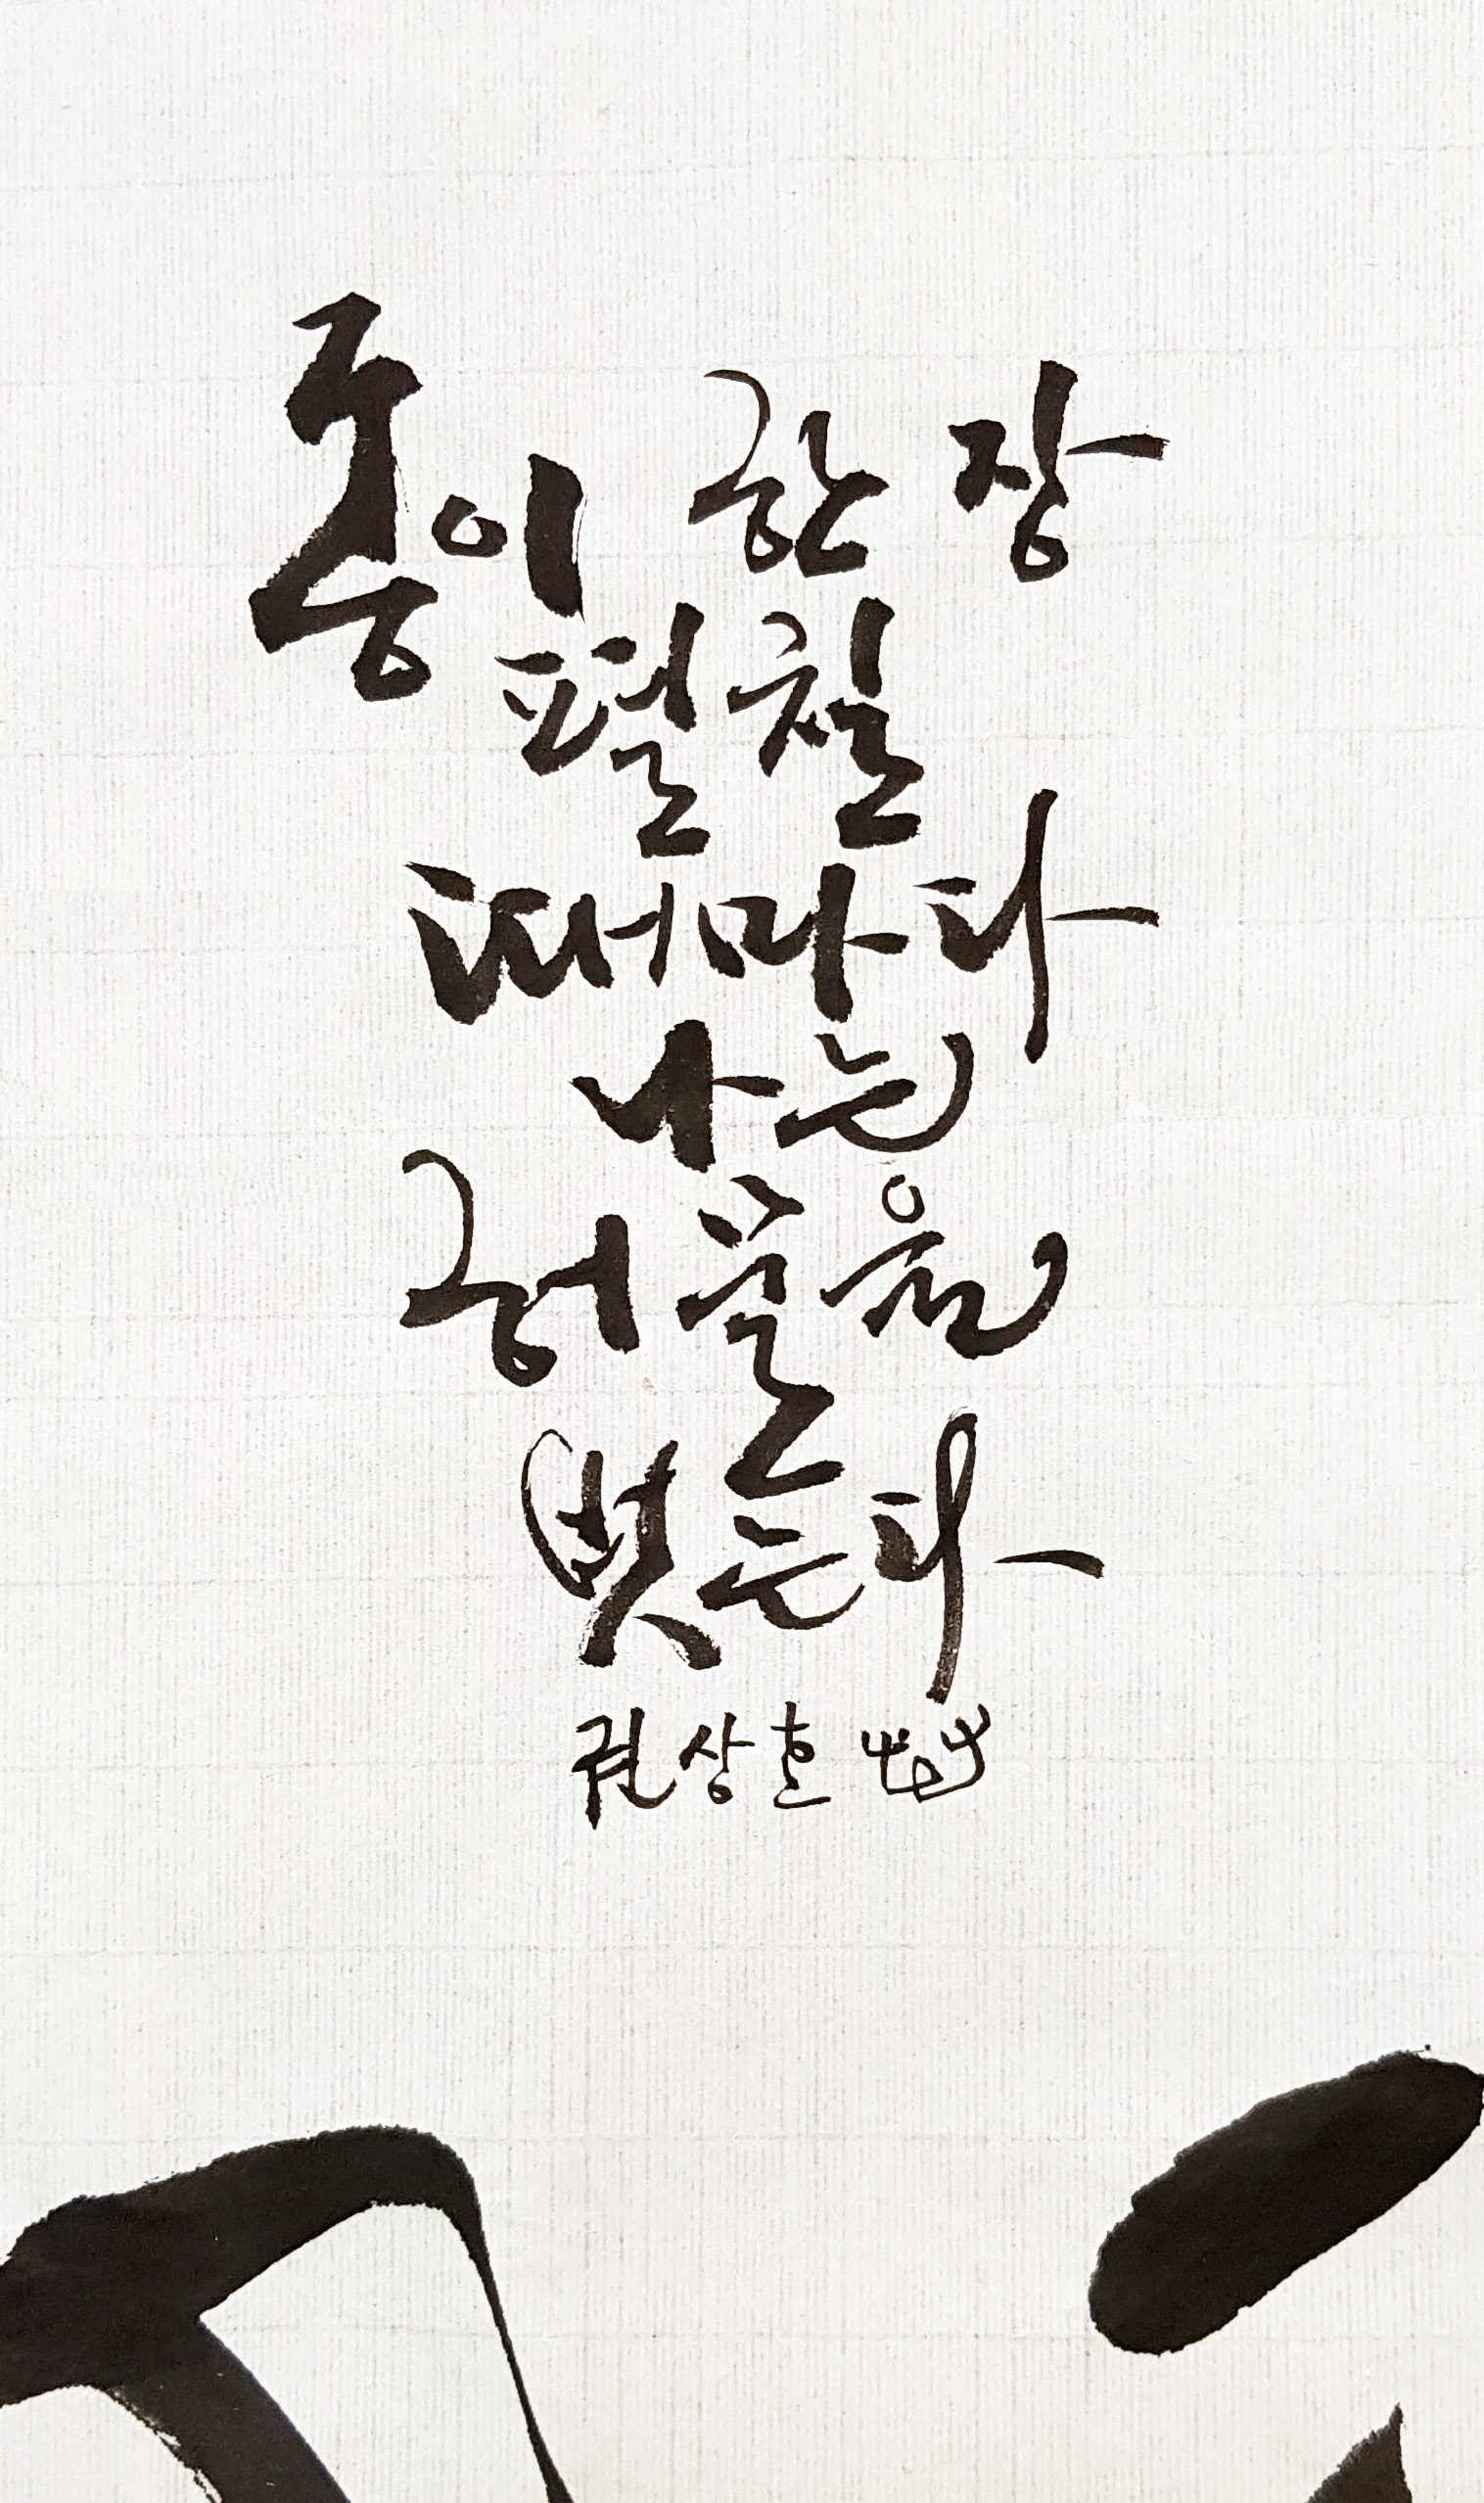 종이 한 장
펼칠
때마다
나는
허물을
벗는다
권상호